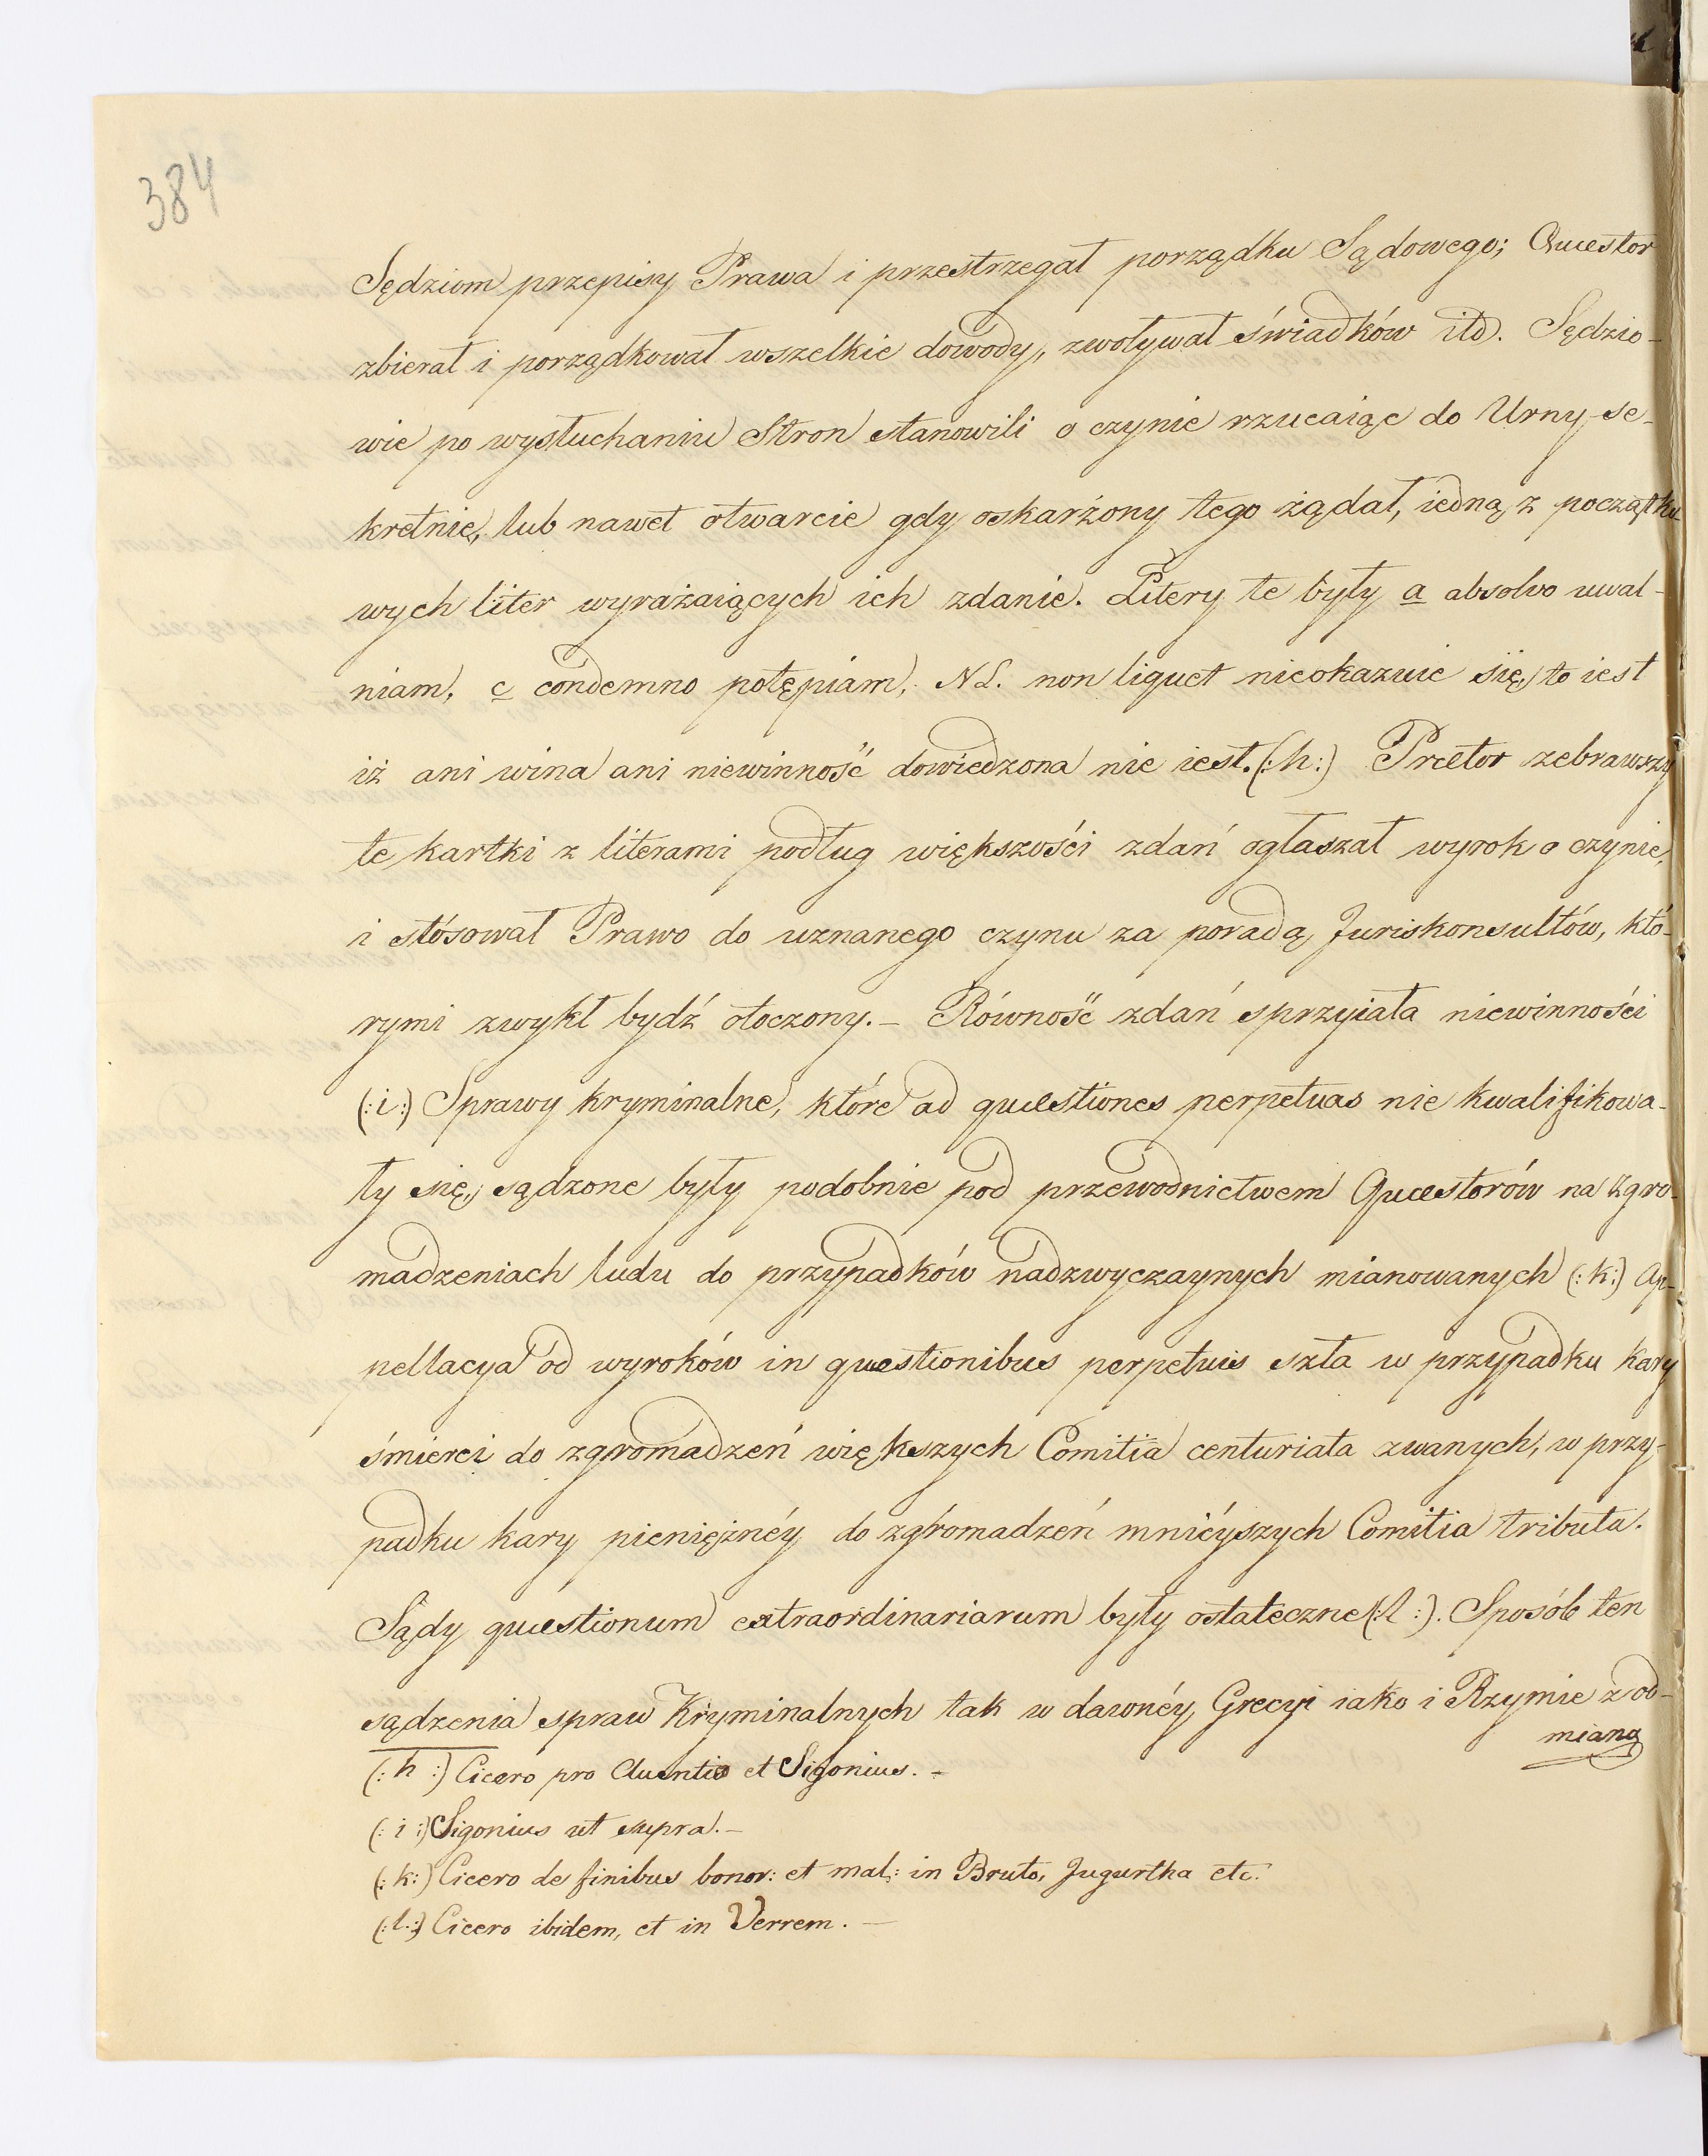 384
Sędziom przepisy Prawa i przestrzegał porządku Sądowego; Quæstor
zbierał i porządkował wszelkie dowody, zwoływał świadków itd. Sędzio-
wie po wysłuchaniu Stron stanowili o czynie rzucaiąc do Urny se-
kretnie, lub nawet otwarcie gdy oskarżony tego żądał, iedną z początko-
wych liter wyrażaiących ich zdanie. Litery te były a absolvo uwal-
niam, c condemno potępiam, NL. non liquet nieokazuie się, to iest
iż ani wina ani niewinność dowiedzona nie iest. (:h:) Prætor zebrawszy
te kartki z literami podług większości zdań ogłaszał wyrok o czynie,
i stósował Prawo do uznanego czynu za poradą Juriskonsultów, któ-
rymi zwykł bydź otoczony. – Równość zdań sprzyiała niewinności
(:i:) Sprawy kryminalne, które ad quæstiones perpetuas nie kwalifikowa-
ły się, sądzone były podobnie pod przewodnictwem Quæstorów na zgro-
madzeniach ludu do przypadków nadzwyczaynych mianowanych (:k:) Ap-
pellacya od wyroków in quæstionibus perpetuis szła w przypadku kary
śmierci do zgromadzeń większych Comitia centuriata zwanych, w przy-
padku kary pieniężnéy do zgromadzeń mniéyszych Comitia tributa.
Sądy quæstionum extraordinariarum były ostateczne (:l:). Sposób ten
sądzenia spraw Kryminalnych tak w dawnéy Grecyi iako i Rzymie z od-
mianą
(:h:) Cicero pro Cluentio et Sigonius. –
(:i:) Sigonius ut supra. –
(:k:) Cicero de finibus bonor: et mal: in Bruto, Jugurtha etc.
(:l:) Cicero ibidem, et in Verrem. –